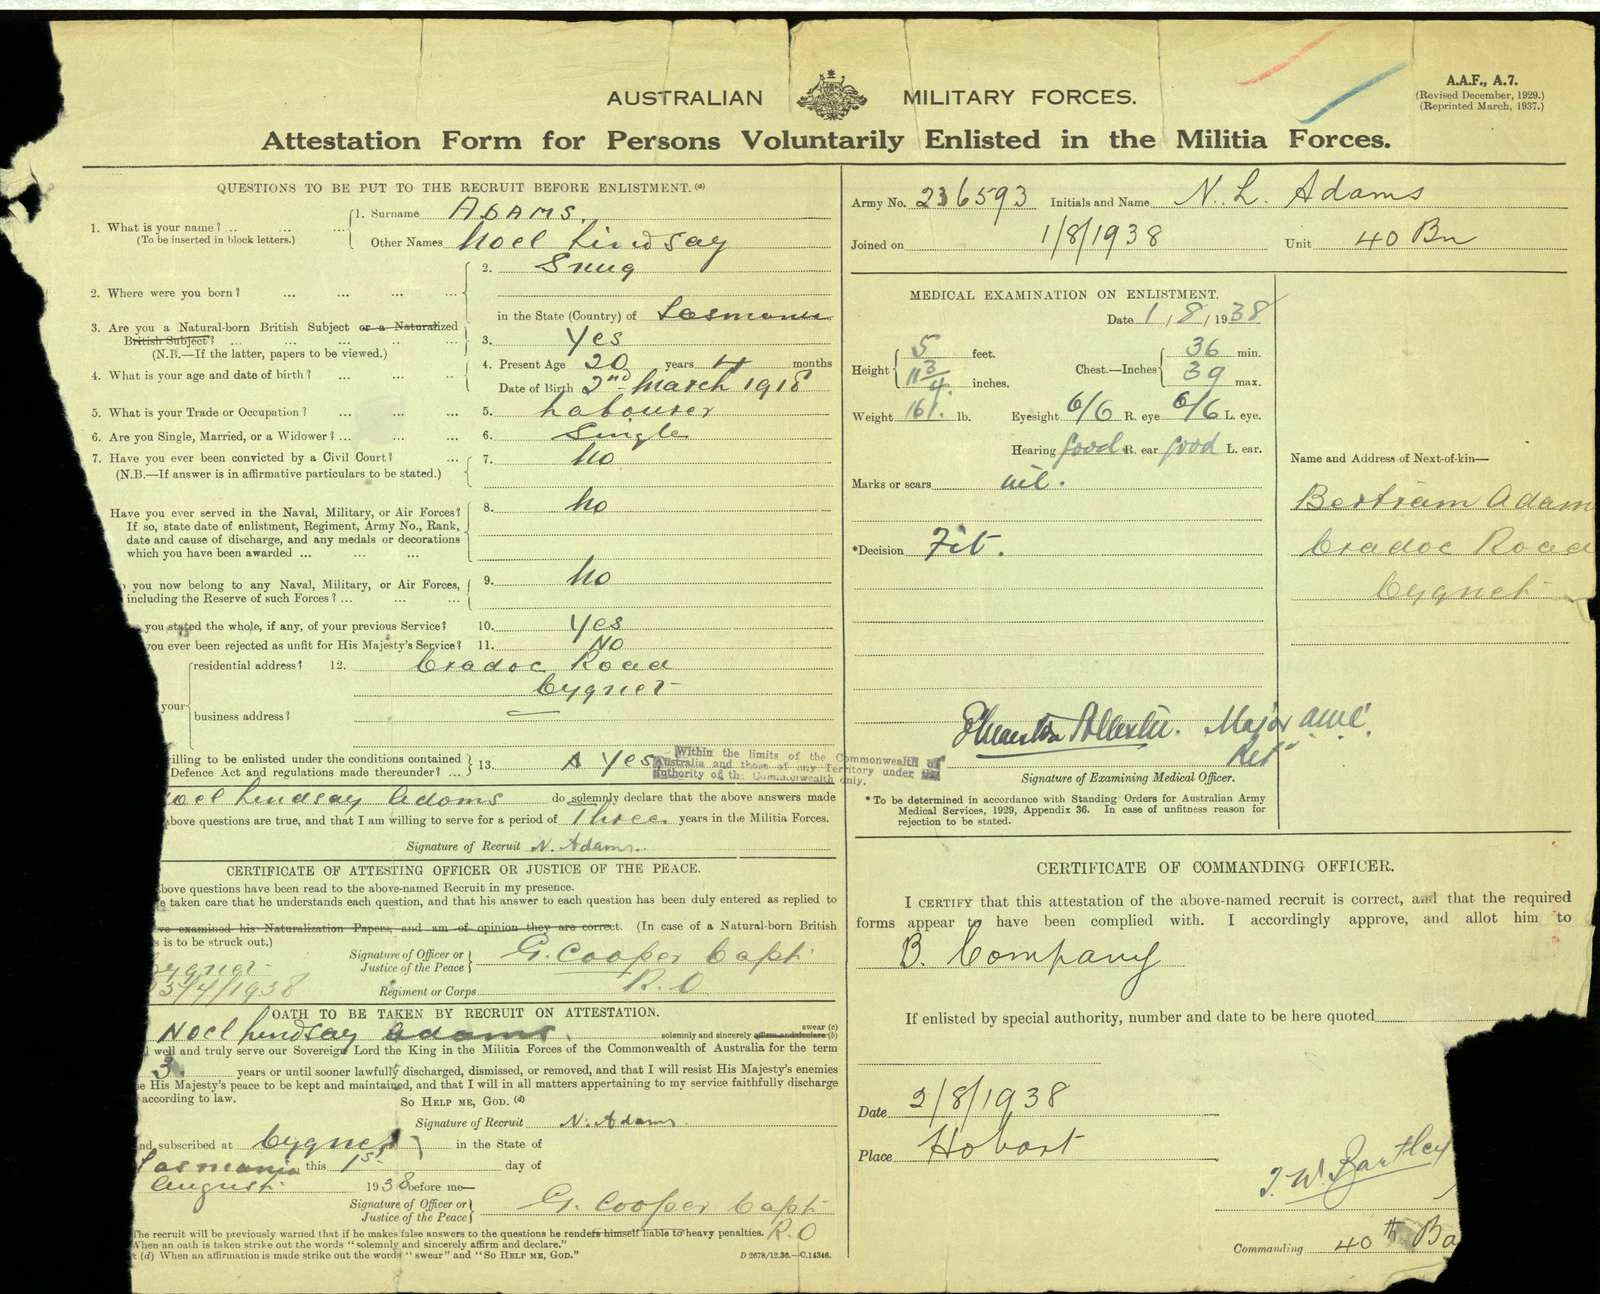 A.A.F., A.7.
(Revised December, 1929.)
(Reprinted March, 1937.)
AUSTRALIAN MILITARY FORCES.
Attestation Form for Persons Voluntarily Enlisted in the Militia Forces.
QUESTIONS TO BE PUT TO THE RECRUIT BEFORE ENLISTMENT.(a)
1. What is your name? .. ... ...
(To be inserted in block letters.)
1. Surname ADAMS.
Other Names Noel Lindsay
2. Where were you born? ... ... ... ...
2. Snug
in the State (Country) of Tasmania
3. Are you a Natural-born British Subject or a Naturalized
British Subject? ... ... ... ... ...
(N.B.—If the latter, papers to be viewed.)
3. Yes
4. What is your age and date of birth? ... ... ...
4. Present Age 20 years 4 months
Date of Birth 2nd March 1918
5. What is your Trade or Occupation? ... ... ...
5. Labourer
6. Are you Single, Married, or a Widower? ... ... ...
6. Single
7. Have you ever been convicted by a Civil Court? ...
(N.B.—If answer is in affirmative particulars to be stated.)
7. No
Have you ever served in the Naval, Military, or Air Forces?
If so, state date of enlistment, Regiment, Army No., Rank,
date and cause of discharge, and any medals or decorations
which you have been awarded ... ... ...
8. No
you now belong to any Naval, Military, or Air Forces,
including the Reserve of such Forces? ... ... ...
9. No
you stated the whole, if any, of your previous Service? 10. Yes
you ever been rejected as unfit for His Majesty's Service? 11. No
your
residential address? 12. Cradoc Road
Cygnet
business address?
illing to be enlisted under the conditions contained
Defence Act and regulations made thereunder? ...
13. A Yes
Within the limits of the Commonwealth of
Australia and those of any Territory under the
authority of the Commonwealth only.
Noel Lindsay Adams do solemnly declare that the above answers made
bove questions are true, and that I am willing to serve for a period of Three years in the Militia Forces.
Signature of Recruit N. Adams.
CERTIFICATE OF ATTESTING OFFICER OR JUSTICE OF THE PEACE.
bove questions have been read to the above-named Recruit in my presence.
e taken care that he understands each question, and that his answer to each question has been duly entered as replied to
ve examined his Naturalization Papers, and am of opinion they are correct. (In case of a Natural-born British
s is to be struck out.)
Signature of Officer or
Justice of the Peace
G. Cooper Capt
Cygnet
5/4/1938
Regiment or Corps R.O
OATH TO BE TAKEN BY RECRUIT ON ATTESTATION.
Noel Lindsay Adams. solemnly and sincerely swear (c)
affirm and declare (b)
well and truly serve our Sovereign Lord the King in the Militia Forces of the Commonwealth of Australia for the term
3 years or until sooner lawfully discharged, dismissed, or removed, and that I will resist His Majesty's enemies
e His Majesty's peace to be kept and maintained, and that I will in all matters appertaining to my service faithfully discharge
according to law.
So HELP ME, GOD. (d)
Signature of Recruit N. Adams.
nd subscribed at Cygnet in the State of
Tasmania this 1st day of
August 1938 before me—
Signature of Officer or
Justice of the Peace
G. Cooper Capt
R.O
The recruit will be previously warned that if he makes false answers to the questions he renders himself liable to heavy penalties.
When an oath is taken strike out the words "solemnly and sincerely affirm and declare."
(d) When an affirmation is made strike out the words "swear" and "So HELP ME, GOD."
D 2678/12.36.—C.14346.
Army No. 236593 Initials and Name N. L. Adams
Joined on 1/8/1938 Unit 40 Bn
MEDICAL EXAMINATION ON ENLISTMENT.
Date 1/8/1938
Height 5 feet.
11 3/4 inches.
Chest.—Inches 36 min.
39 max.
Weight 161. lb. Eyesight 6/6 R. eye 6/6 L. eye.
Hearing good R. ear good L. ear.
Marks or scars nil.
*Decision Fit.
Name and Address of Next-of-kin—
Bertram Adam
Cradoc Road
Cygnet
Major amc
Ret
Signature of Examining Medical Officer.
* To be determined in accordance with Standing Orders for Australian Army
Medical Services, 1929, Appendix 36. In case of unfitness reason for
rejection to be stated.
CERTIFICATE OF COMMANDING OFFICER.
I CERTIFY that this attestation of the above-named recruit is correct, and that the required
forms appear to have been complied with. I accordingly approve, and allot him to
B. Company
If enlisted by special authority, number and date to be here quoted
Date 2/8/1938
Place Hobart
J. W. Bartley
Commanding 40th Ba